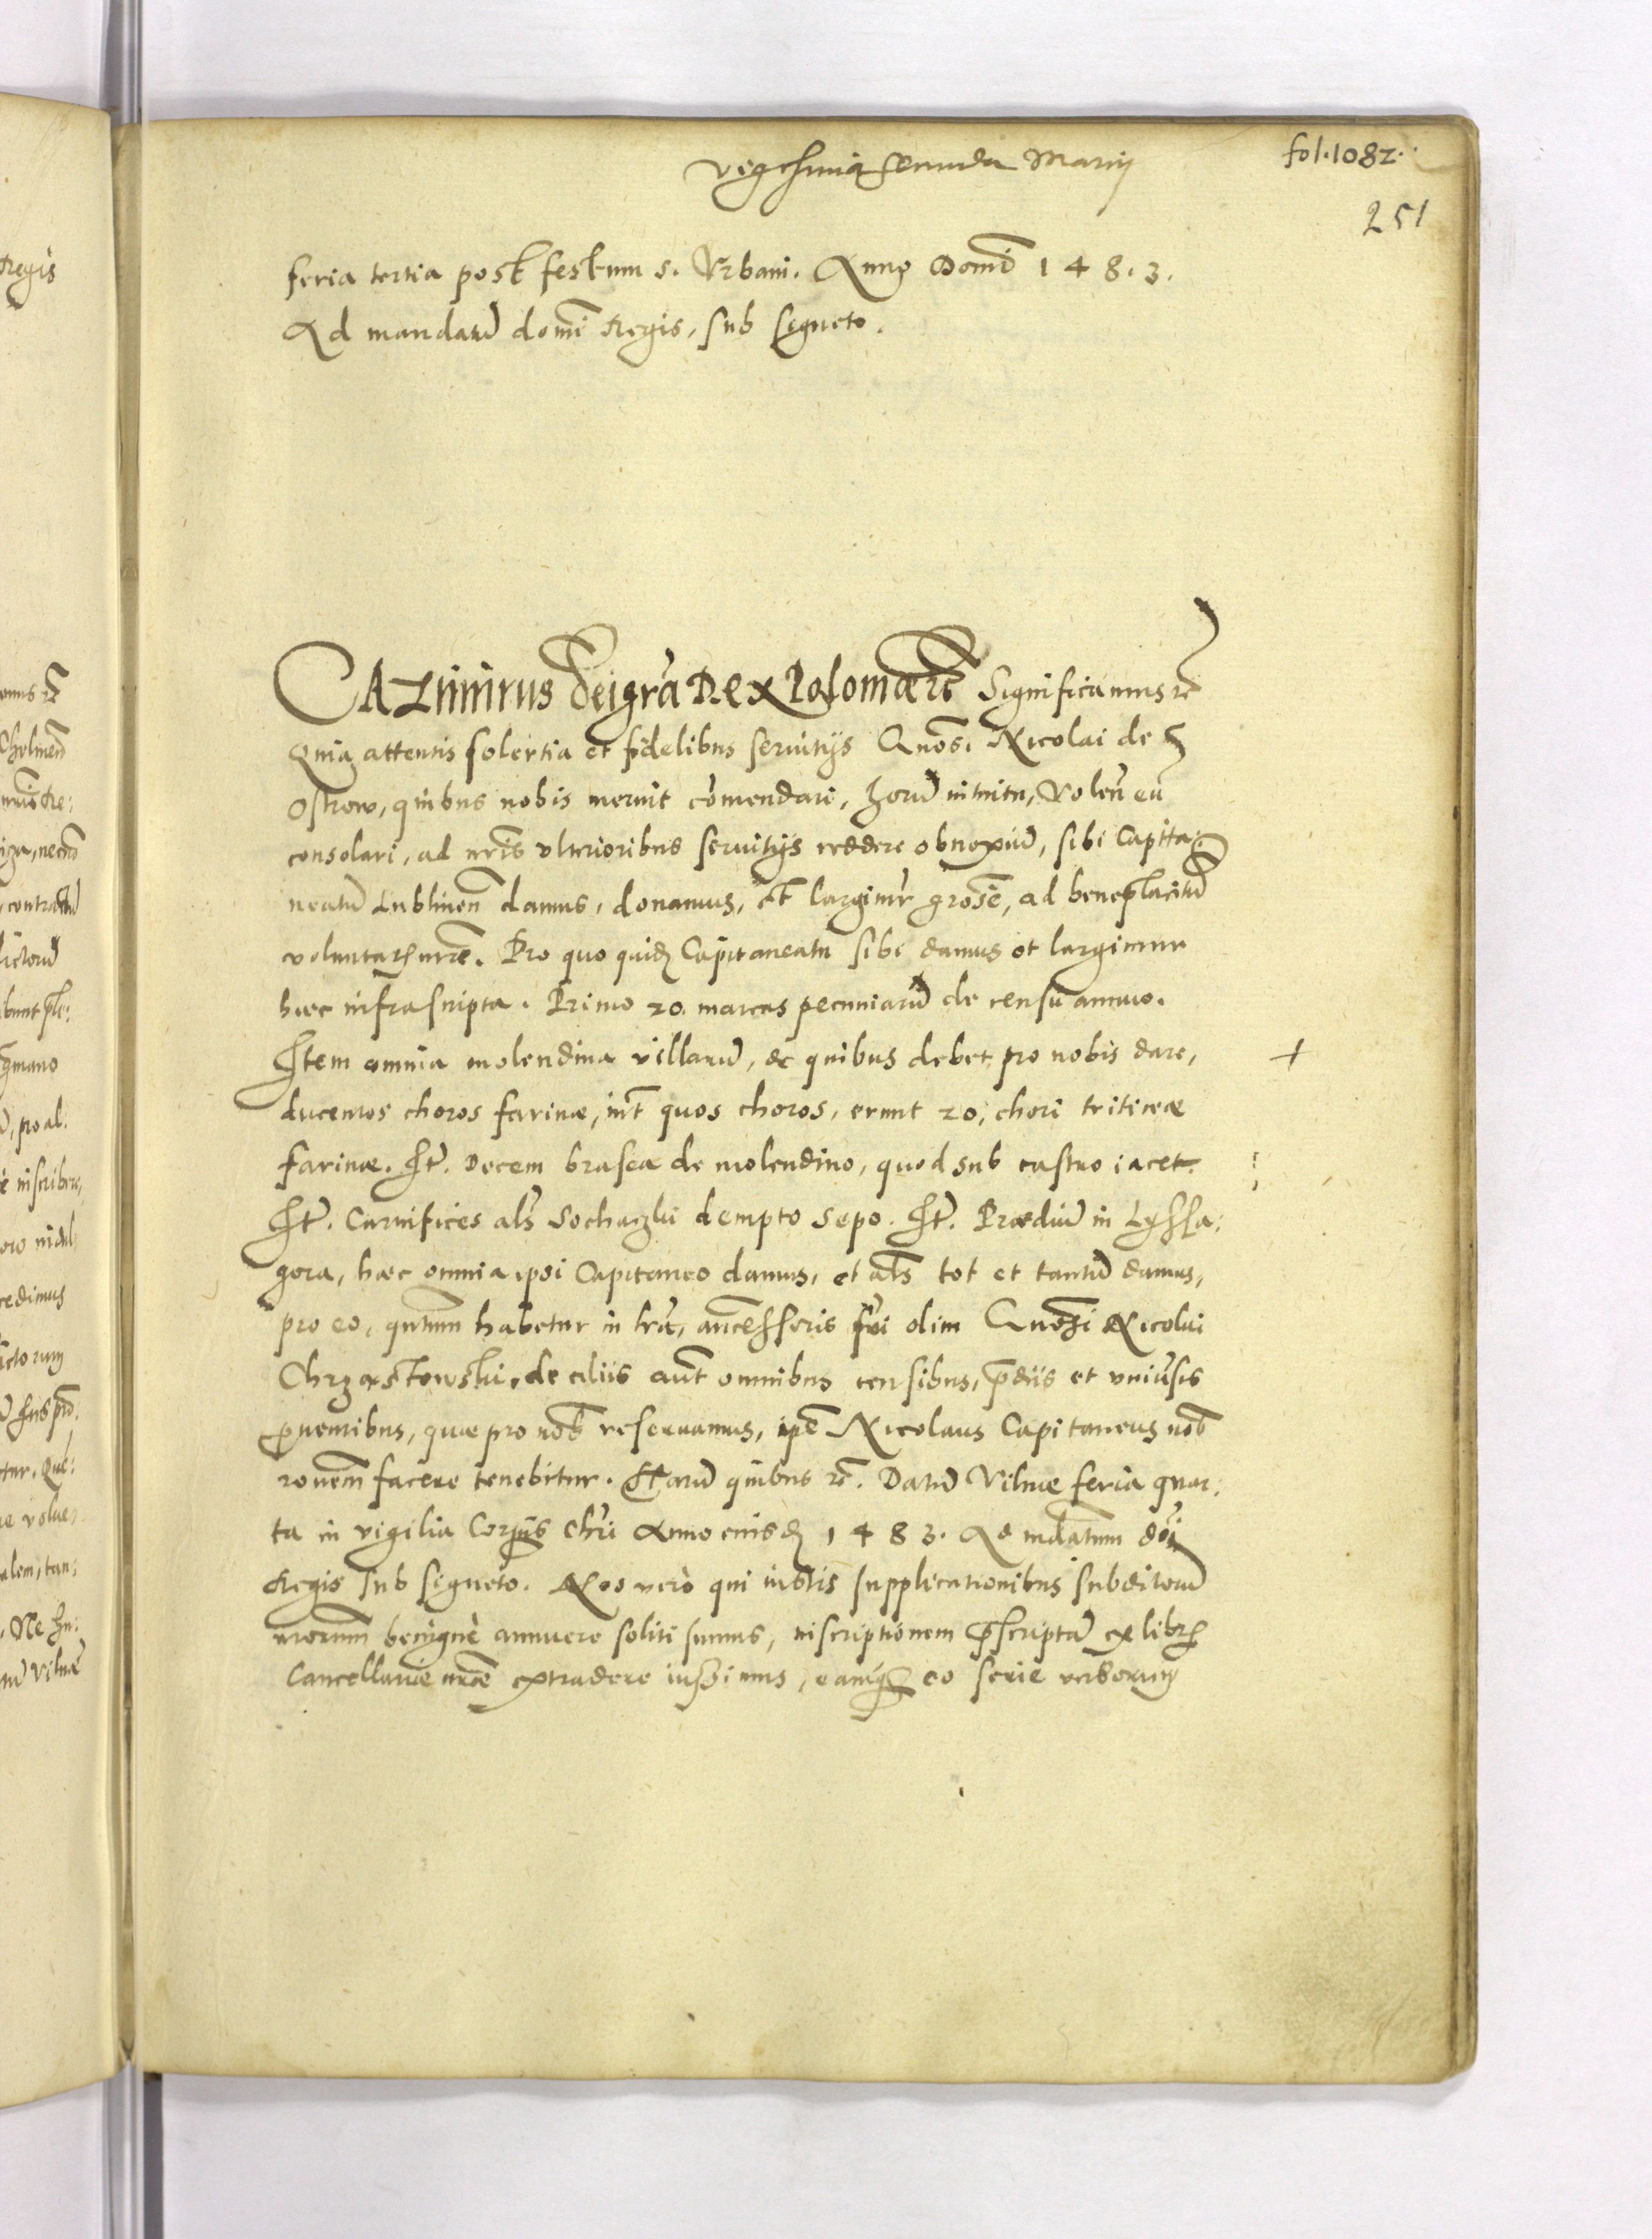 vigesima secunda Marcij
fol. 1082.
251
feria tertia post festum s. Vrbani. Anno Domī 1483.
Ad mandatū domī Regis, sub signeto.
CAZimirus Dei grā Rex Poloniæ &c̄ Significamus &c̄
Quia attentis solertia et fidelibus seruitijs Gnōsi Nicolai de
Ostrow, quibus nobis meruit cōmendari, horū intuitu, Volen̄ eū
consolari, ad nr̄is vlterioribus seruitijs reddere obnoxiū, sibi Capita:
neatū Lublinen̄ damus, donamus, et largimr̄ grōse, ad beneplacitū
voluntatis nr̄æ. Pro quo quidē Capitaneatu sibi damus et largimur
hæc infrascripta. Primo 20. marcas pecuniarū de censu annuo.
Item omnia molendina villarū, de quibus debet pro nobis dare,
ducentos choros farinæ, int̄ quos choros, erunt 20, chori triticeæ
farinæ. Itē. Decem brasea de molendino, quod sub castro iacet.
Itē. Carnifices als̄ Sochaczki dempto sepo. Itē. Prædiū in Lyssa:
gora, hæc omnia ipsi Capitaneo damus, et als̄ tot et tantū damus,
pro eo, qntum habetur in lr̄a, ancessoris sui olim Gnōsi Nicolai
Chrząstowski, de aliis aut̄ omnibus censibus, p̄diis et vniūsis
ꝓuentibus, quæ pro nob̄ reseruamus, ipē Nicolaus Capitaneus nob̄
rōnem facere tenebitur. Harū quibus &c̄. Datū Vilnæ feria quar:
ta in vigilia Corpis Chr̄i Anno eiusdē 1483. Ad mdatum dōi
Regis sub signeto. Nos verò qui iustis supplicationibus subditorū
nrorum benignè annuere soliti sumus, inscriptionem p̄scriptā ex libr̄
Cancellariæ nr̄æ extradere iussimus, eamq̄ eo serie verborum